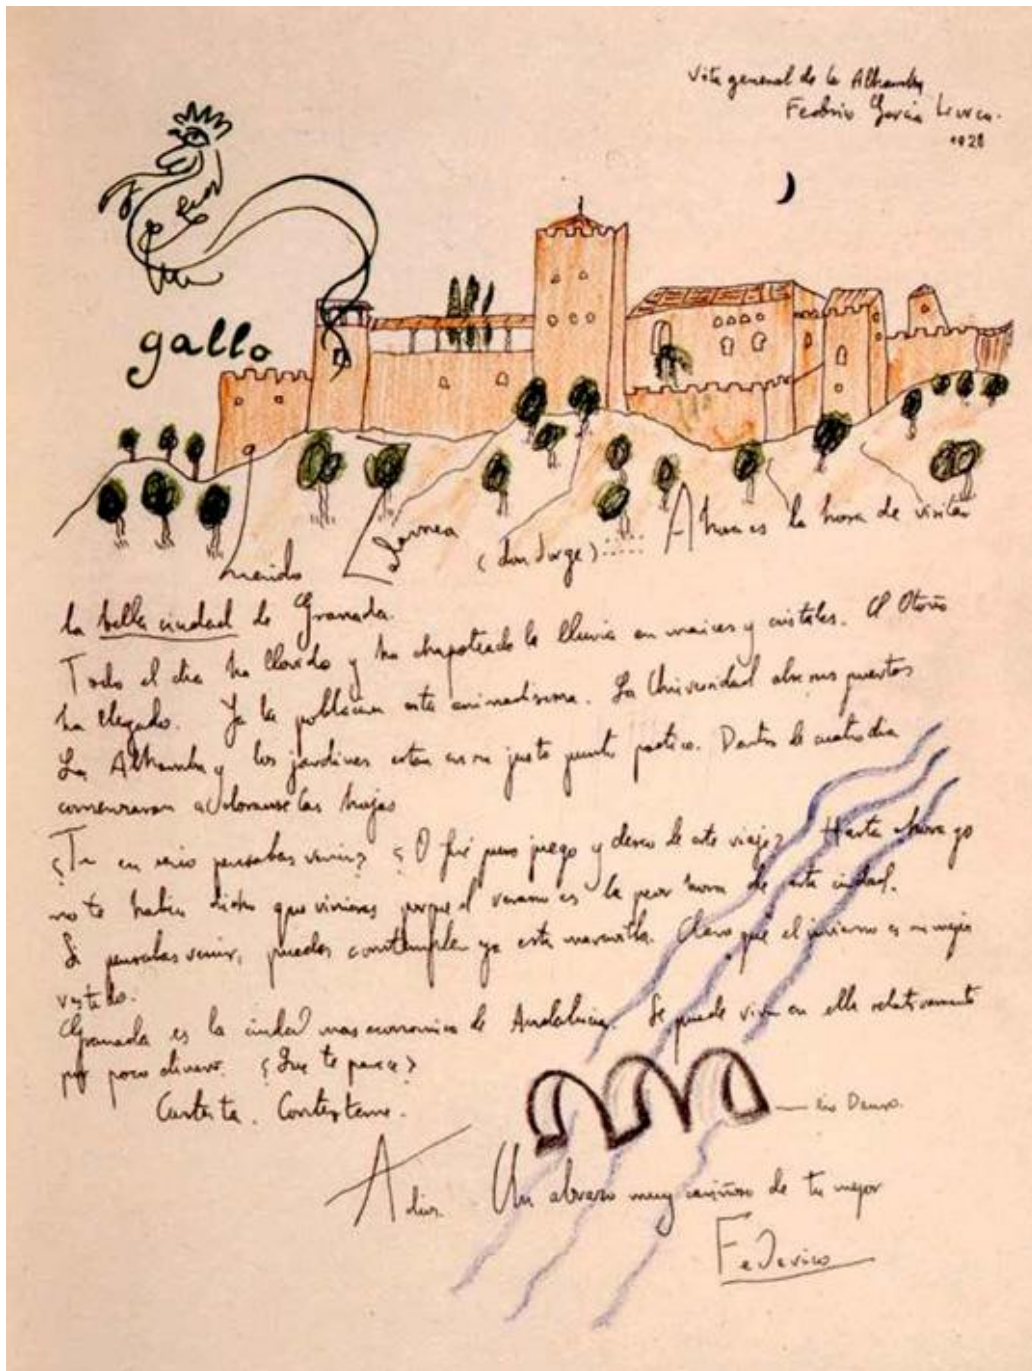 Vista general de la Alhambra
Federico García Lorca.
1928
gallo
Querido (don Jorge): Ahora es la hora de visitar
la bella ciudad de Granada.
Todo el dia ha llovido y ha chapoteado la lluvia en maices y cristales. El Otoño
ha llegado. Ya la poblacion esta animadisima. La Universidad abre sus puertas
La Alhambra y los jardines estan en su justo punto poetico. Dentro de cuatro dias
comenzaran a dorarse las hojas
¿Tu en serio pensabas venir? ¿O fué puro juego y deseo de este viaje? Hasta ahora yo
no te habia dicho que vinieras porque el verano es la peor hora de esta ciudad.
Si pensabas venir, puedes contemplar ya esta maravilla. Claro que el invierno es su mejor
vestido.
Granada es la ciudad mas economica de Andalucia. Se puede vivir en ella relativamente
por poco dinero. ¿Que te parece?
Contesta. Contestame.
rio Dauro.
Adios. Un abrazo muy cariñoso de tu mejor
Federico